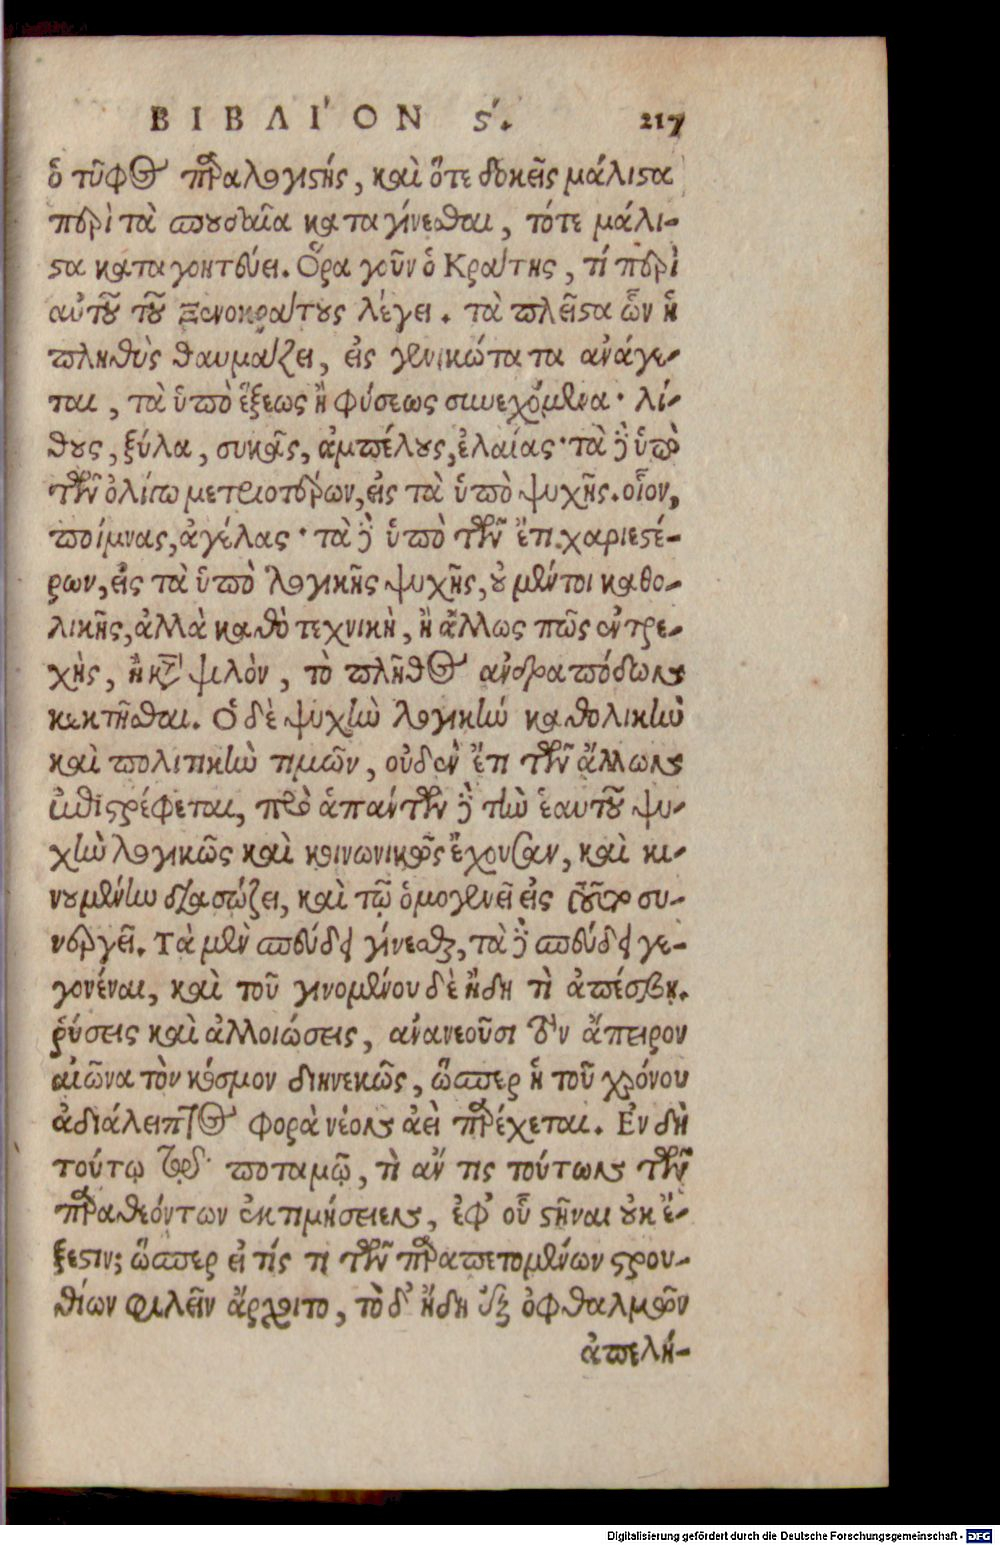 ΒΙΒΛΙ'ΟΝ ϛ'. 217
ὁ τῦφος παραλογιστής, καὶ ὅτε δοκεῖς μάλιστα
περὶ τὰ σπουδαῖα καταγίνεσθαι, τότε μάλι-
στα καταγοητεύει. Ὅρα γοῦν ὁ Κράτης, τί περὶ
αὐτοῦ τοῦ Ξενοκράτους λέγει. τὰ πλεῖστα ὧν ἡ
πληθὺς θαυμάζει, εἰς γενικώτατα ανάγε-
ται, τὰ ὑπὸ ἕξεως ἢ φύσεως συνεχόμενα· λί-
θους, ξύλα, συκᾶς, ἀμπέλους, ἐλαίας· τὰ δὲ ὑπὸ
τῶν ὀλίγῳ μετριοτέρων, εἰς τὰ ὑπὸ ψυχῆς. οἷον,
ποίμνας, ἀγέλας· τὰ δὲ ὑπὸ τῶν ἔτι χαριεστέ-
ρων, εἰς τὰ ὑπὸ λογικῆς ψυχῆς, οὐ μέντοι καθο-
λικῆς, ἀλλὰ καθὸ τεχνικὴ, ἢ ἄλλως πῶς ἐντρε-
χὴς, ἢ κατὰ ψιλὸν, τὸ πλῆθος ανδραπόδων
κεκτῆσθαι. Ὁ δὲ ψυχὴν λογικὴν καθολικὴν
καὶ πολιτικὴν τιμῶν, οὐδὲν ἔτι τῶν ἄλλων
ἐπιστρέφεται, πρὸ ἁπάντων δὲ τὴν ἑαυτοῦ ψυ-
χὴν λογικῶς καὶ κοινωνικῶς ἔχουσαν, καὶ κι-
νουμένην διασώζει, καὶ τῷ ὁμογενεῖ εἰς τοῦτο συ-
νεργεῖ. Τὰ μὲν σπεύδει γίνεσθαι, τὰ δὲ σπεύδει γε-
γονέναι, καὶ τοῦ γινομένου δὲ ἤδη τὶ ἀπέσβη.
ῥύσεις καὶ ἀλλοιώσεις, ανανεοῦσι τὸν ἄπειρον
αἰῶνα τὸν κόσμον διηνεκῶς, ὥσπερ ἡ τοῦ χρόνου
ἀδιάλειπτος φορὰ νέον ἀεὶ παρέχεται. Ἐν δὴ
τούτῳ τῷ ποταμῷ, τὶ αν τις τούτων τῶν
παραθεόντων ἐκτιμήσειεν, ἐφ' οὗ στῆναι οὐκ ἔ-
ξεστιν; ὥσπερ εἰ τίς τι τῶν παραπετομένων στρου-
θίων φιλεῖν ἄρχοιτο, τὸ δ' ἤδη ἐξ ὀφθαλμῶν
ἀπελή-
Digitalisierung gefördert durch die Deutsche Forschungsgemeinschaft - DFG